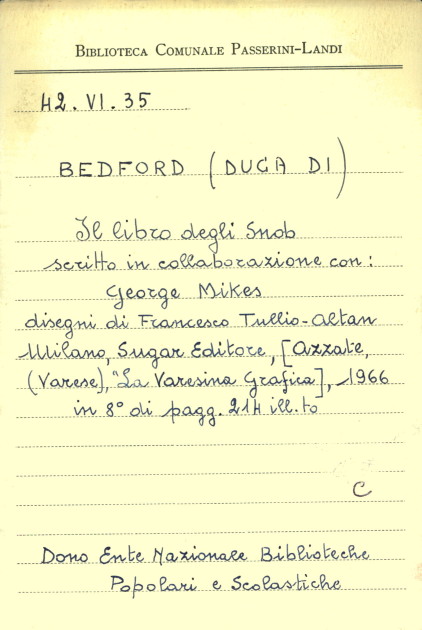 Biblioteca Comunale Passerini-Landi
42.VI.35
BEDFORD (DUCA DI)
Il libro degli Snob
scritto in collaborazione con:
George Mikes
disegni di Francesco Tullio-Altan
Milano, Sugar Editore, [Azzate,
(Varese), "La Varesina Grafica], 1966
in 8° di pagg. 214 ill.to
C
Dono Ente Nazionale Biblioteche
Popolari e Scolastiche